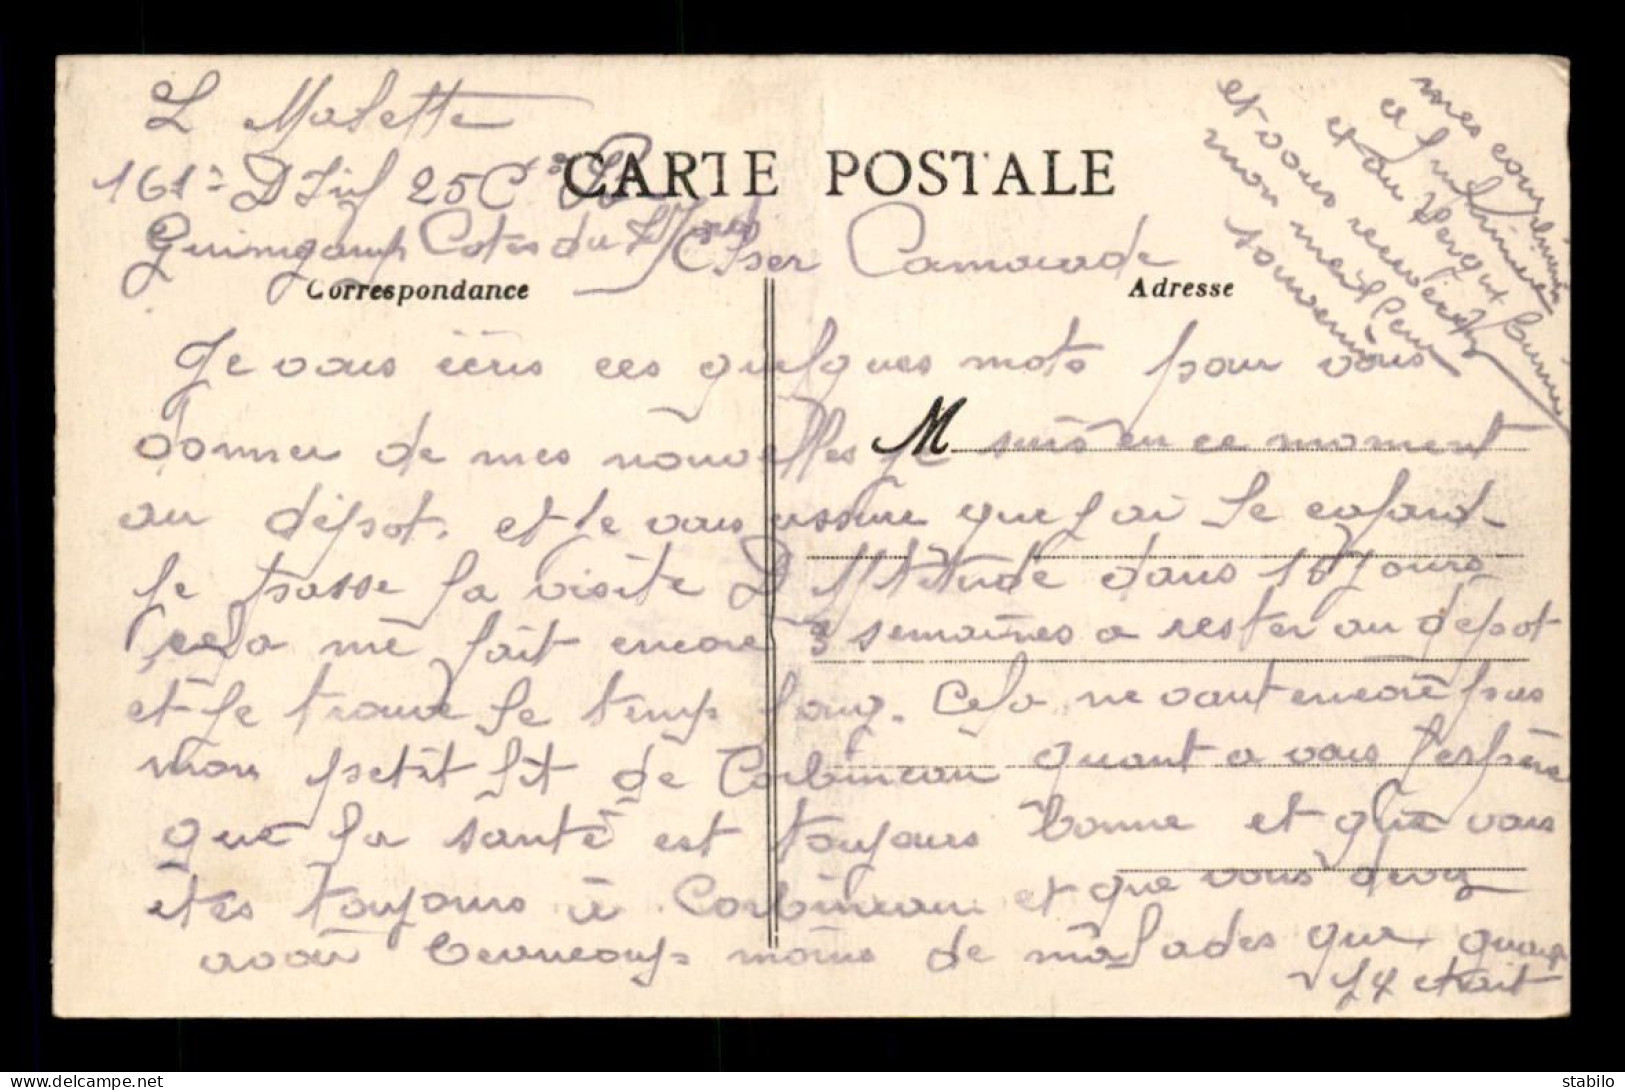 L Malette
161e D Inf 25 Cie
CARTE POSTALE
Guingamp Cotes du Nord
Cher Camarade
Correspondance
Adresse
Je vous écris ces quelques mots pour vous
donner de mes nouvelles je suis en ce moment
M
au dépot. et je vous assure que j ai le cafard
je passe la visite D Attitude dans 16 jours
Cela me fait encore 3 semaines a rester au depot
et je trouve le temp long. Cela ne vaut encore pas
mon petit lit de Corbineau quant a vous j'espère
que la santé est toujours bonne et que vous
êtes toujours à Corbineau et que vous devez
avoir beaucoup moins de malades que quand
j y etait
mes compliments
a l infirmier
et au
et vous recevrez
mon meilleur
souvenir
stabilo
www.delcampe.net